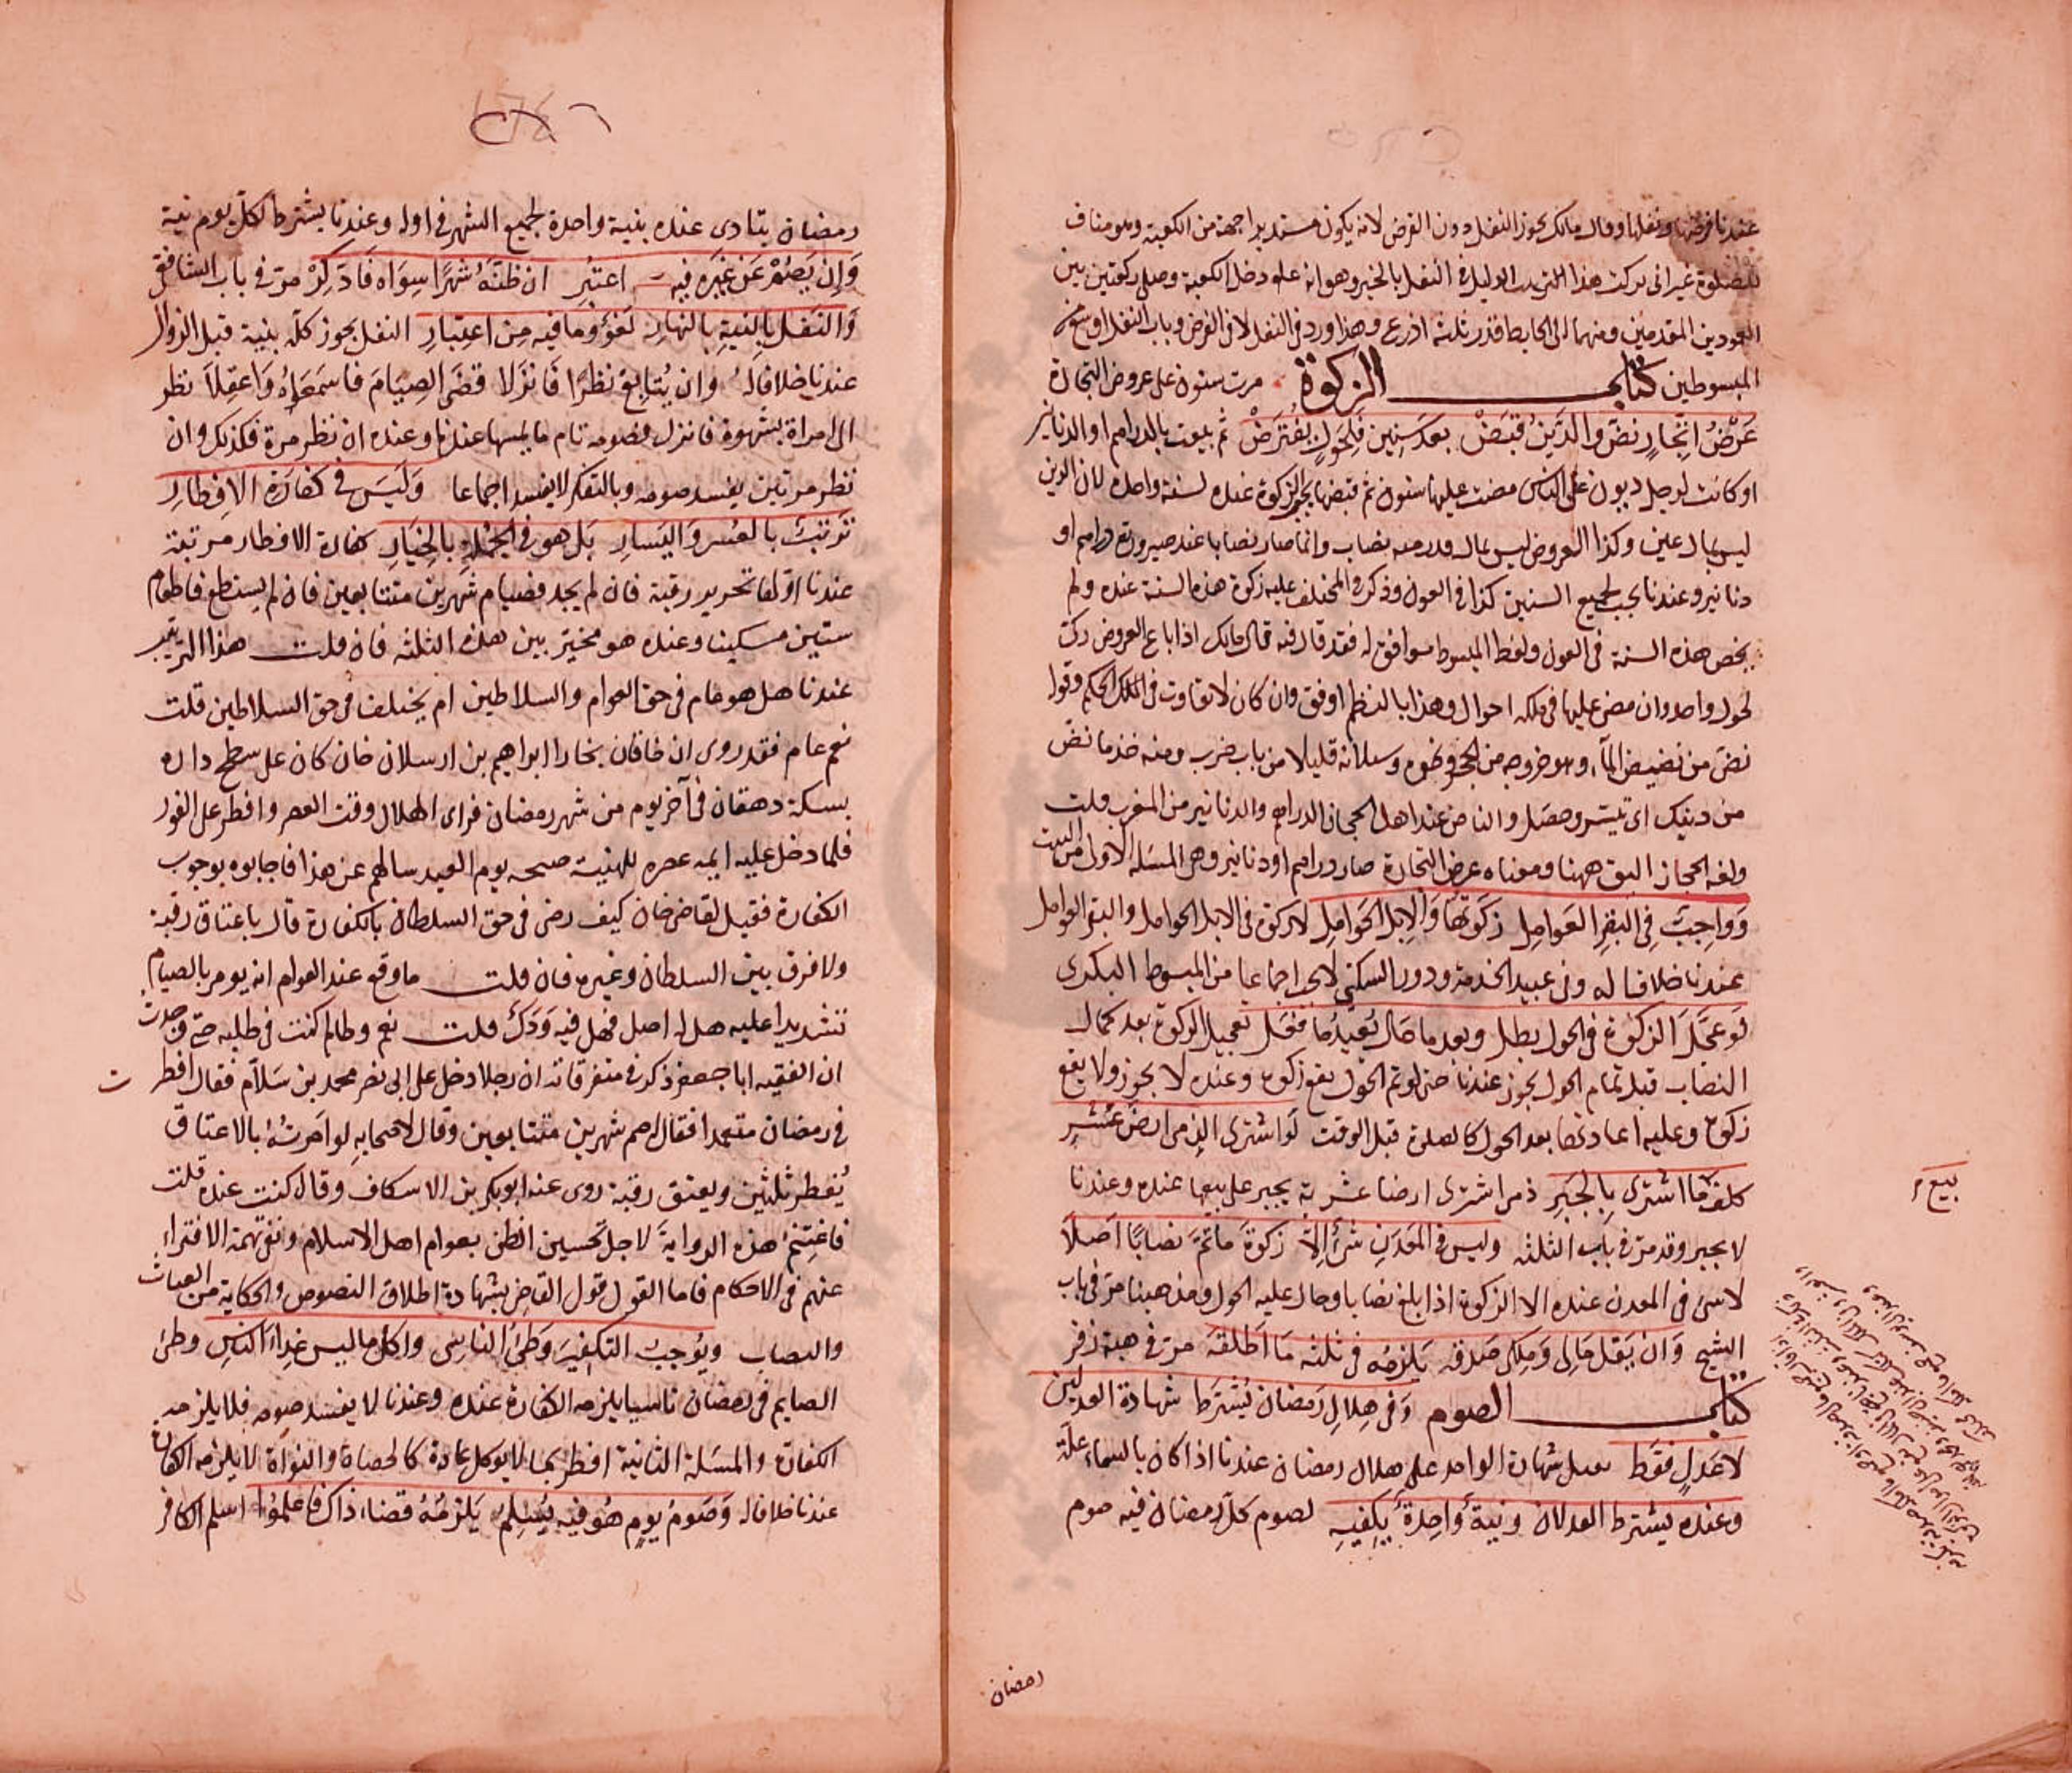 عندنا فرضها ونفلها وقال مالك يجوز النفل دون الفرض لانه يكون مستدبرا جهة من الكعبة وهو مناف
للصلوة غير انى تركت هذا الدليل فى النفل بالخبر وهو انه عليه دخل الكعبة وصلى ركعتين بين
العمودين المقدمين وبينهما الى الحايط قدر ثلثة اذرع وهذا ورد فى النفل لا فى الفرض وباب النفل اوسع من
المبسوطين كتاب الزكوة مرت سنون على عروض التجارة
عَرْضُ اتِّجَارٍ نضّ والدَّيْنُ قُبِضْ بعد سِنِين فَلِحَوْلٍ يُفْتَرَضْ ثم بيعت بالدراهم او الدنانير
او كانت لرجل ديون على الناس مضت عليها سنون ثم قبضها يجب الزكوة عنده لسنة واحدة لان الدين
ليس بمال عين وكذا العروض ليس بمال قدر منه نصاب وانما صار نصابا عند صيرورته دراهم او
دنانير وعندنا يجب لجميع السنين كذا فى العون وذكر فى المختلف عليه زكوة هذه السنة عنده ولم
يخص هذه السنة فى العون ولفظ المبسوط موافق له فقد قال فيه قال مالك اذا باع العروض زكى
لحول واحد وان مضى عليها فى ملكه احوال وهذا بالنظم اوفق وان كان لا تفاوت فى الحكم وقوله
نضّ من نضيض الماء وهو خروجه من الحجر ونحوه وسيلانه قليلا من باب ضرب ومنه خذ ما نضّ
من دينك اى تيسر وحصل والناض عند اهل الحجاز الدراهم والدنانير من المغرب قلت
ولغة الحجاز اليق ههنا ومعناه عرض التجارة صار دراهم او دنانير وهى المسئلة الاولى من البيت
وَوَاجِبٌ فِى البَقَرِ العَوَامِلِ زَكَوتُهَا وَالِابِلِ الحَوَامِلِ لا زكوة فى الابل الحوامل والبقر العوامل
عندنا خلافا له وفى عبيد الخدمة ودور السكنى لا يجب اجماعا من المبسوط البكرى
لَو عَجَّلَ الزكوةَ فى الحول بطل وبعد ما حَال يُعِيدُ ما فَعَل تعجيل الزكوة بعد كمال
النصاب قبل تمام الحول يجوز عندنا حتى لو تم الحول يقع زكوة وعنده لا يجوز ولا يقع
زكوة وعليه اعادتها بعد الحول كالصلوة قبل الوقت لَو اشترى الذِمى ارضَ عُشْرِ
كلف ما اشترى بِالجَبرِ ذمى اشترى ارضا عشرية يجبر على بيعها عنده وعندنا
لا يجبر وقد مرّ فى باب الثلثة وليس فى المَعْدِنِ شَىٌ اِلاّ زكوة مَا تَمَّ نصابًا اَصْلاً
لا شئ فى المعدن عنده الا الزكوة اذا بلغ نصابا وحال عليه الحول ومذهبنا مرّ فى باب
الشيخ وَان يَقُل مَالِى وَمِلكِى صَدقه يَلزمُه فى ثلثه مَا اَطلقَه مرّ فى هبة زفر
كتاب الصوم وَفى هِلالِ رَمضان يُشْتَرَط شهادة العدلين
لا عَدلٍ فقَط يقبل شهادة الواحد على هلال رمضان عندنا اذا كان بالسماء علة
وعنده يشترط العدلان ونيةٌ وَاحِدةٌ يَكفيهِ لصوم كل رمضان فيه صوم
رمضان
بيع م
رمضان يتادى عنده بنية واحدة لجميع الشهر فى اوله وعندنا يشترط لكل يوم نية
وَاِن يَصُمْ عَن غَيرِه فيه اعتُبِر ان ظنّهُ شهرًا سِوَاه فَادّكِرْ مرّ فى باب الشافعى
وَالنَفل بالنيةِ بالنهارِ لَغوٌ وما فيه مِن اعتِبَارِ النفل يجوز كله بنية قبل الزوال
عندنا خلافا له وان يُتابِعْ نظرًا فَانزَلا قضَى الصِيَامَ فاسمَعَنْهُ وَاعقِلاَ نظر
الى امراة بشهوة فانزل فصومه تام ما لم يمسها عندنا وعنده ان نظر مرة فكذلك وان
نظر مرتين يفسد صومه وبالتفكر لا يفسد اجماعا وَلَيسَ فى كفارَةِ الافِطارِ
تَرتّبٌ بالعُسر وَاليَسارِ بَل هو فى الجُملةِ بالخِيَارِ كفارة الافطار مرتبة
عندنا اوّلها تحرير رقبة فان لم يجد فصيام شهرين متتابعين فان لم يستطع فاطعام
ستين مسكينا وعنده هو مخيّر بين هذه الثلثة فان قلت هذا الترتيب
عندنا هل هو عام فى حق العوام والسلاطين ام يختلف فى حق السلاطين قلت
نعم عام فقد روى ان خاقان بخارا ابراهيم بن ارسلان خان كان على سطح داره
بسكة دهقان فى آخر يوم من شهر رمضان فراى الهلال وقت العصر وافطر على الفور
فلما دخل عليه ايمة عصره للتهنية صبيحة يوم العيد سالهم عن هذا فاجابوه بوجوب
الكفارة فقيل لقاضى خان كيف رضى فى حق السلطان بالكفارة قال باعتاق رقبة
ولا فرق بين السلطان وغيره فان قلت ما وقع عند العوام انه يومر بالصيام
تشديدا عليه هل له اصل فهل فيه وَدَك قلت نعم وطالما كنت فى طلبه حتى وجدت
ان الفقيه ابا جعفر ذكر فى متفرقاته ان رجلا دخل على ابى نصر محمد بن سَلاّم فقال افطرت
فى رمضان متعمدا فقال صم شهرين متتابعين وقال لاصحابه لو امَرتُهُ بالاعتاق
يُفطر ثلثين ويعتق رقبة روى عنه ابو بكر بن الاسكاف وقال كنت عنده قلت
فاغتنِمْ هذه الروايةَ لاجل تحسين الظن بعوام اهل الاسلام ونفى تهمة الافتراء
عنهم فى الاحكام فاما القول قول القاضى بشهادة اطلاق النصوص والحكاية من الغياث
والنصاب ويُوجبُ التكفيرَ وَطئُ الناسِى واكل ما ليس غِذاءَ الناسِ وطئ
الصايم فى رمضان ناسيا يلزمه الكفارة عنده وعندنا لا يفسد صومه فلا يلزمه
الكفارة والمسئلة الثانية افطر بما لا يوكل عادة كالحصاة والنواة لا يلزمه الكفارة
عندنا خلافا له وَصَومُ يومٍ هُو فيه يُسْلِمُ يَلزمُهُ قضاء ذاك فاعلمُوا اسلم الكافر